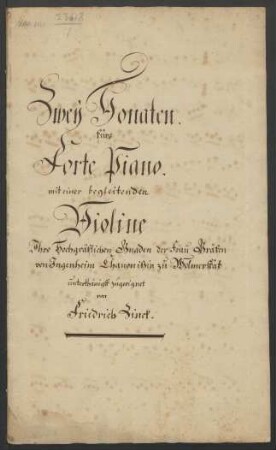 Zwey Sonaten.
fürs
Forte Piano.
mit einer begleitenden
Violine
Ihro Hochgräflichen Gnaden der Frau Gräfin
von Ingenheim Chanoinißin zu Wolmerstädt
unterthänigst zugeeignet
von
Friedrich Zinck.